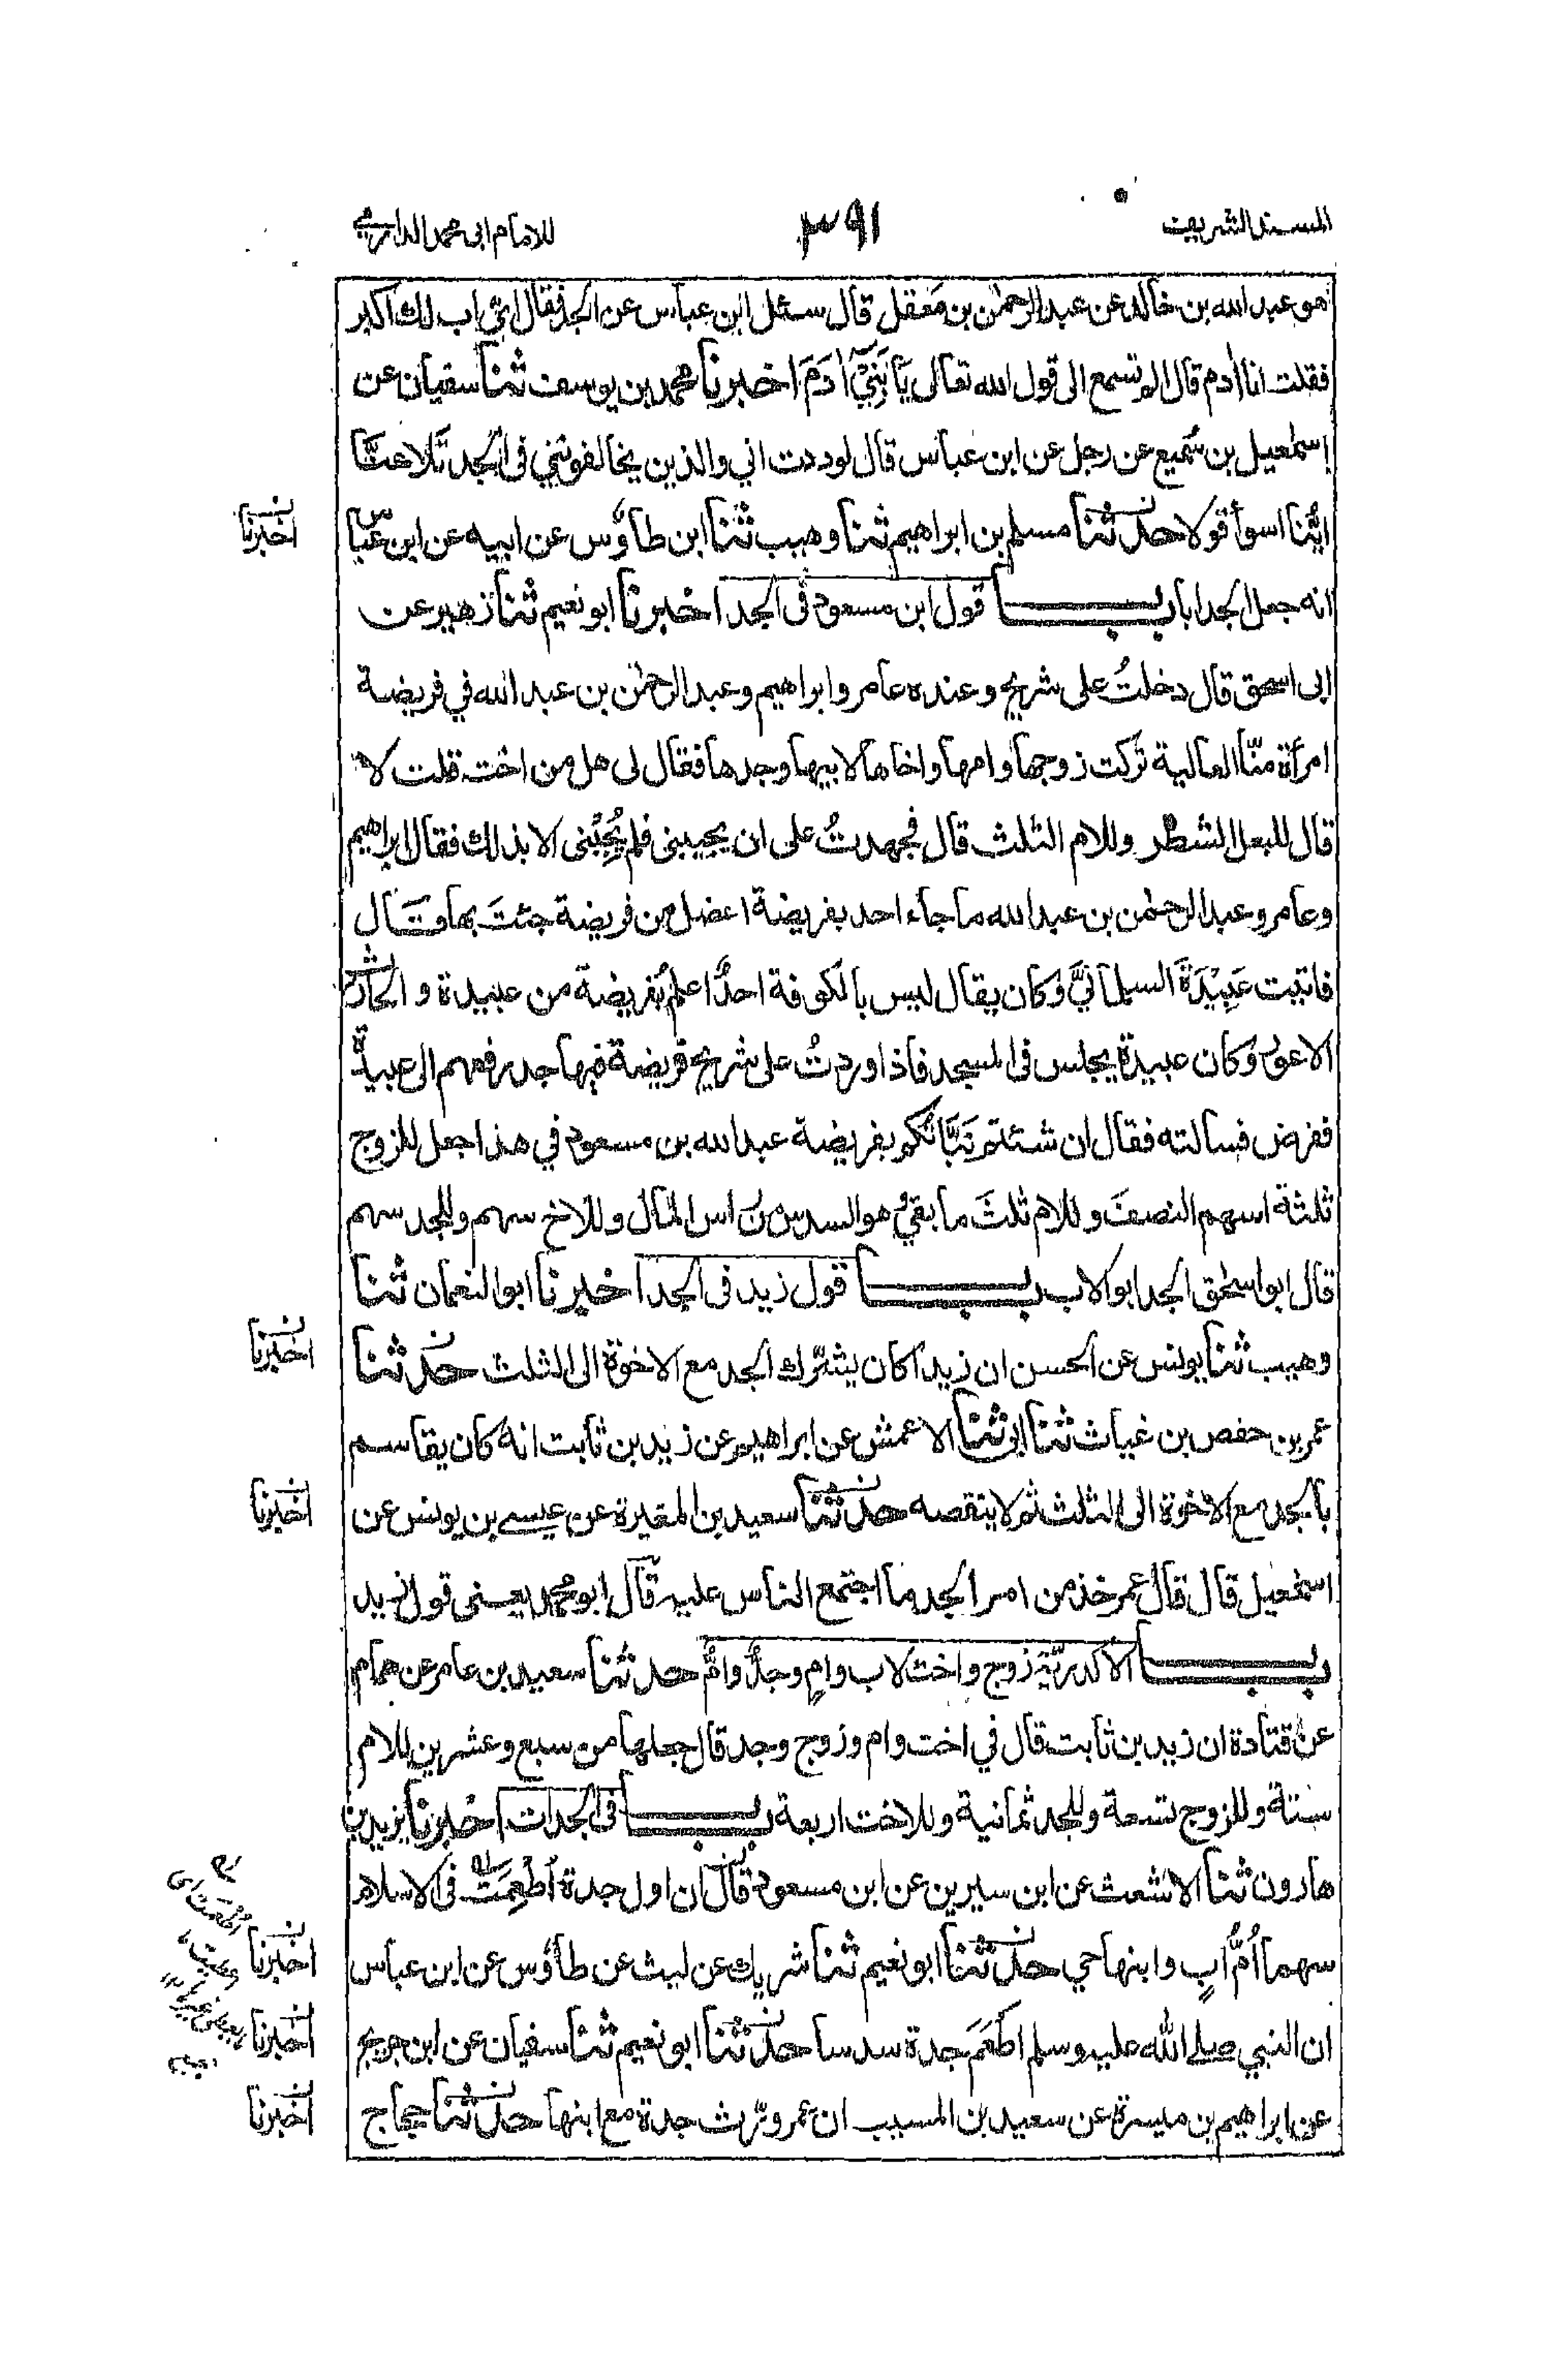 المسند الشريف ٣٩١ للامام ابى محمد الدارمي
هو عبد الله بن خالد عن عبد الرحمٰن بن مَعقل قال سئل ابن عباس عن الجد فقال ائ اب لك اكبر
فقلت انا اٰدم قال الم تسمع الى قول الله تعالى يَا بَنِيْٓ اٰدَمَ اخبرنا محمد بن يوسف ثنا سفيان عن
اسمٰعيل بن سُميع عن رجل عن ابن عباس قال لوددت اني والذين يخالفونني فى الجد تلاعنّا
ايُّنا اسوأ قولا حدثنا مسلم بن ابراهيم ثنا وهيب ثنا ابن طاؤس عن ابيه عن ابن عباس
انه جعل الجد ابا باب قول ابن مسعود فى الجد اخبرنا ابو نعيم ثنا زهير عن
ابى اسحق قال دخلتُ على شريح وعنده عامر وابراهيم وعبد الرحمٰن بن عبد الله في فريضة
امرأة منّا العالية تركت زوجها وامها واخاها لابيها وجدها فقال لى هل من اخت قلت لا
قال للبعل الشطر وللام الثلث قال فجهدتُ على ان يجيبنى فلم يُجِبْنى الا بذلك فقال ابراهيم
وعامر وعبد الرحمٰن بن عبد الله ما جاء احد بفريضة اعضل من فريضة جئتَ بها قال
فاتيت عَبِيْدَةَ السلمانيَّ وكان يقال ليس بالكوفة احدٌ اعلم بفريضة من عبيدة و الحارث
الاعور وكان عبيدة يجلس فى المسجد فاذا وردتُ على شريح فريضة فيها جد رفعهم الى عبيدة
ففرض فسالته فقال ان شئتم نَبَّأتكم بفريضة عبد الله بن مسعود في هذا جعل للزوج
ثلثة اسهم النصفَ وللام ثلثَ ما بقي هو السدس من راس المال وللاخ سهم وللجد سهم
قال ابو اسحٰق الجد ابو الاب باب قول زيد فى الجد اخبرنا ابو النعمان ثنا
وهيب ثنا يونس عن الحسن ان زيدا كان يشرّك الجد مع الاخوة الى الثلث حدثنا
عمر بن حفص بن غياث ثنا ابى ثنا الاعمش عن ابراهيم عن زيد بن ثابت انه كان يقاسم
بالجد مع الاخوة الى الثلث ثم لا ينقصه حدثنا سعيد بن المغيرة عن عيسى بن يونس عن
اسمٰعيل قال قال عمر خذ من امر الجد ما اجتمع الناس عليه قال ابو محمد يعنى قول زيد
باب الاكدريّة زوج واخت لاب وامٍ وجدٌ وامٌّ حدثنا سعيد بن عامر عن همام
عن قتادة ان زيد بن ثابت قال في اخت وام وزوج وجد قال جعلها من سبع وعشرين للام
ستة وللزوج تسعة وللجد ثمانية وللاخت اربعة باب فى الجدات اخبرنا يزيد بن
هارون ثنا الاشعث عن ابن سيرين عن ابن مسعود قال ان اول جدة اُطْعِمَتْ فى الاسلام
سهما اُمُّ اَبٍ وابنها حي حدثنا ابو نعيم ثنا شريك عن ليث عن طاؤس عن ابن عباس
ان النبي صلے الله عليه وسلم اَطْعَمَ جدة سدسا حدثنا ابو نعيم ثنا سفيان عن ابن جريج
عن ابراهيم بن ميسرة عن سعيد بن المسيب ان عمر ورّث جدة مع ابنها حدثنا حجاج
اخبرنا
اخبرنا
اخبرنا
اخبرنا
اخبرنا
اخبرنا